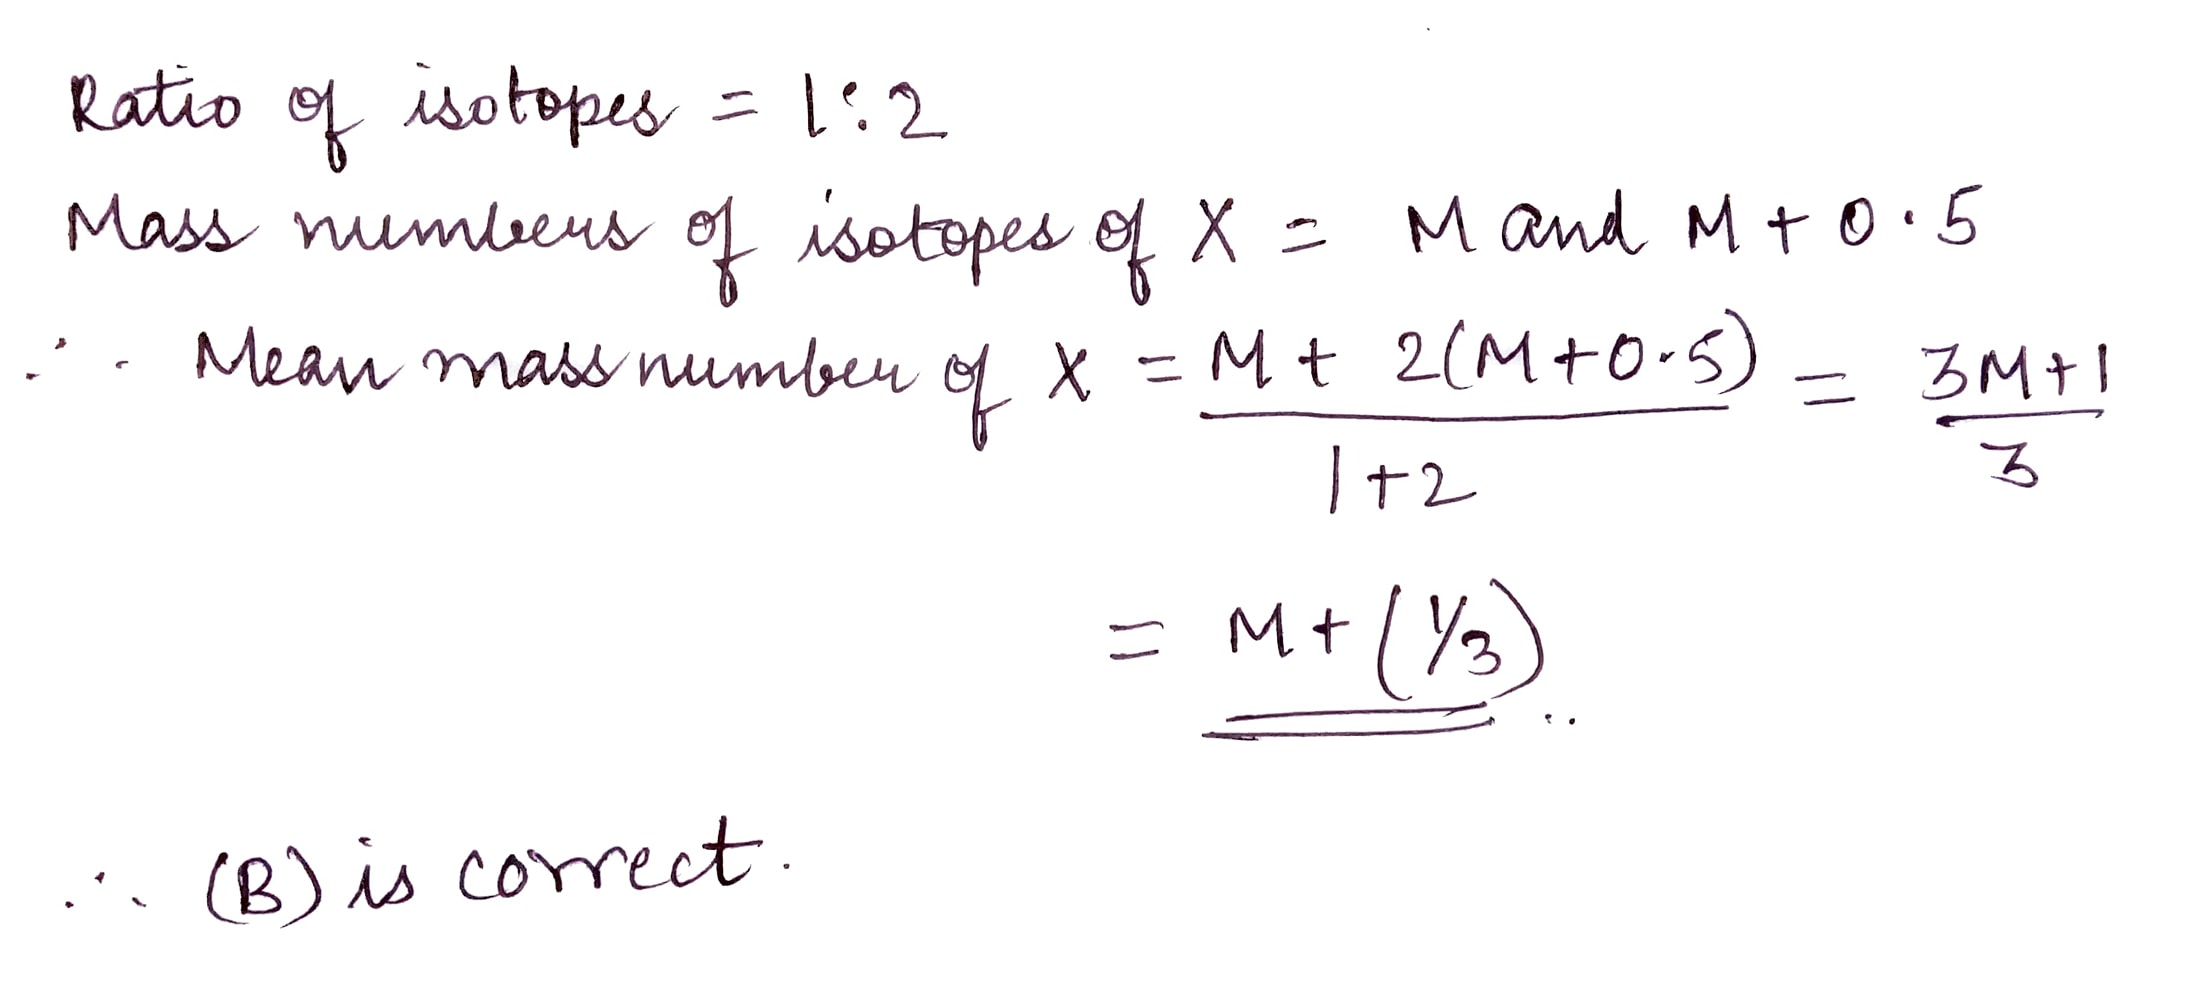 Ratio of isotopes = 1:2
Mass numbers of isotopes of X = M and M + 0.5
∴ Mean mass number of X = M + 2(M+0.5) / 1+2 = 3M+1 / 3
= M + (1/3)
∴ (B) is correct.